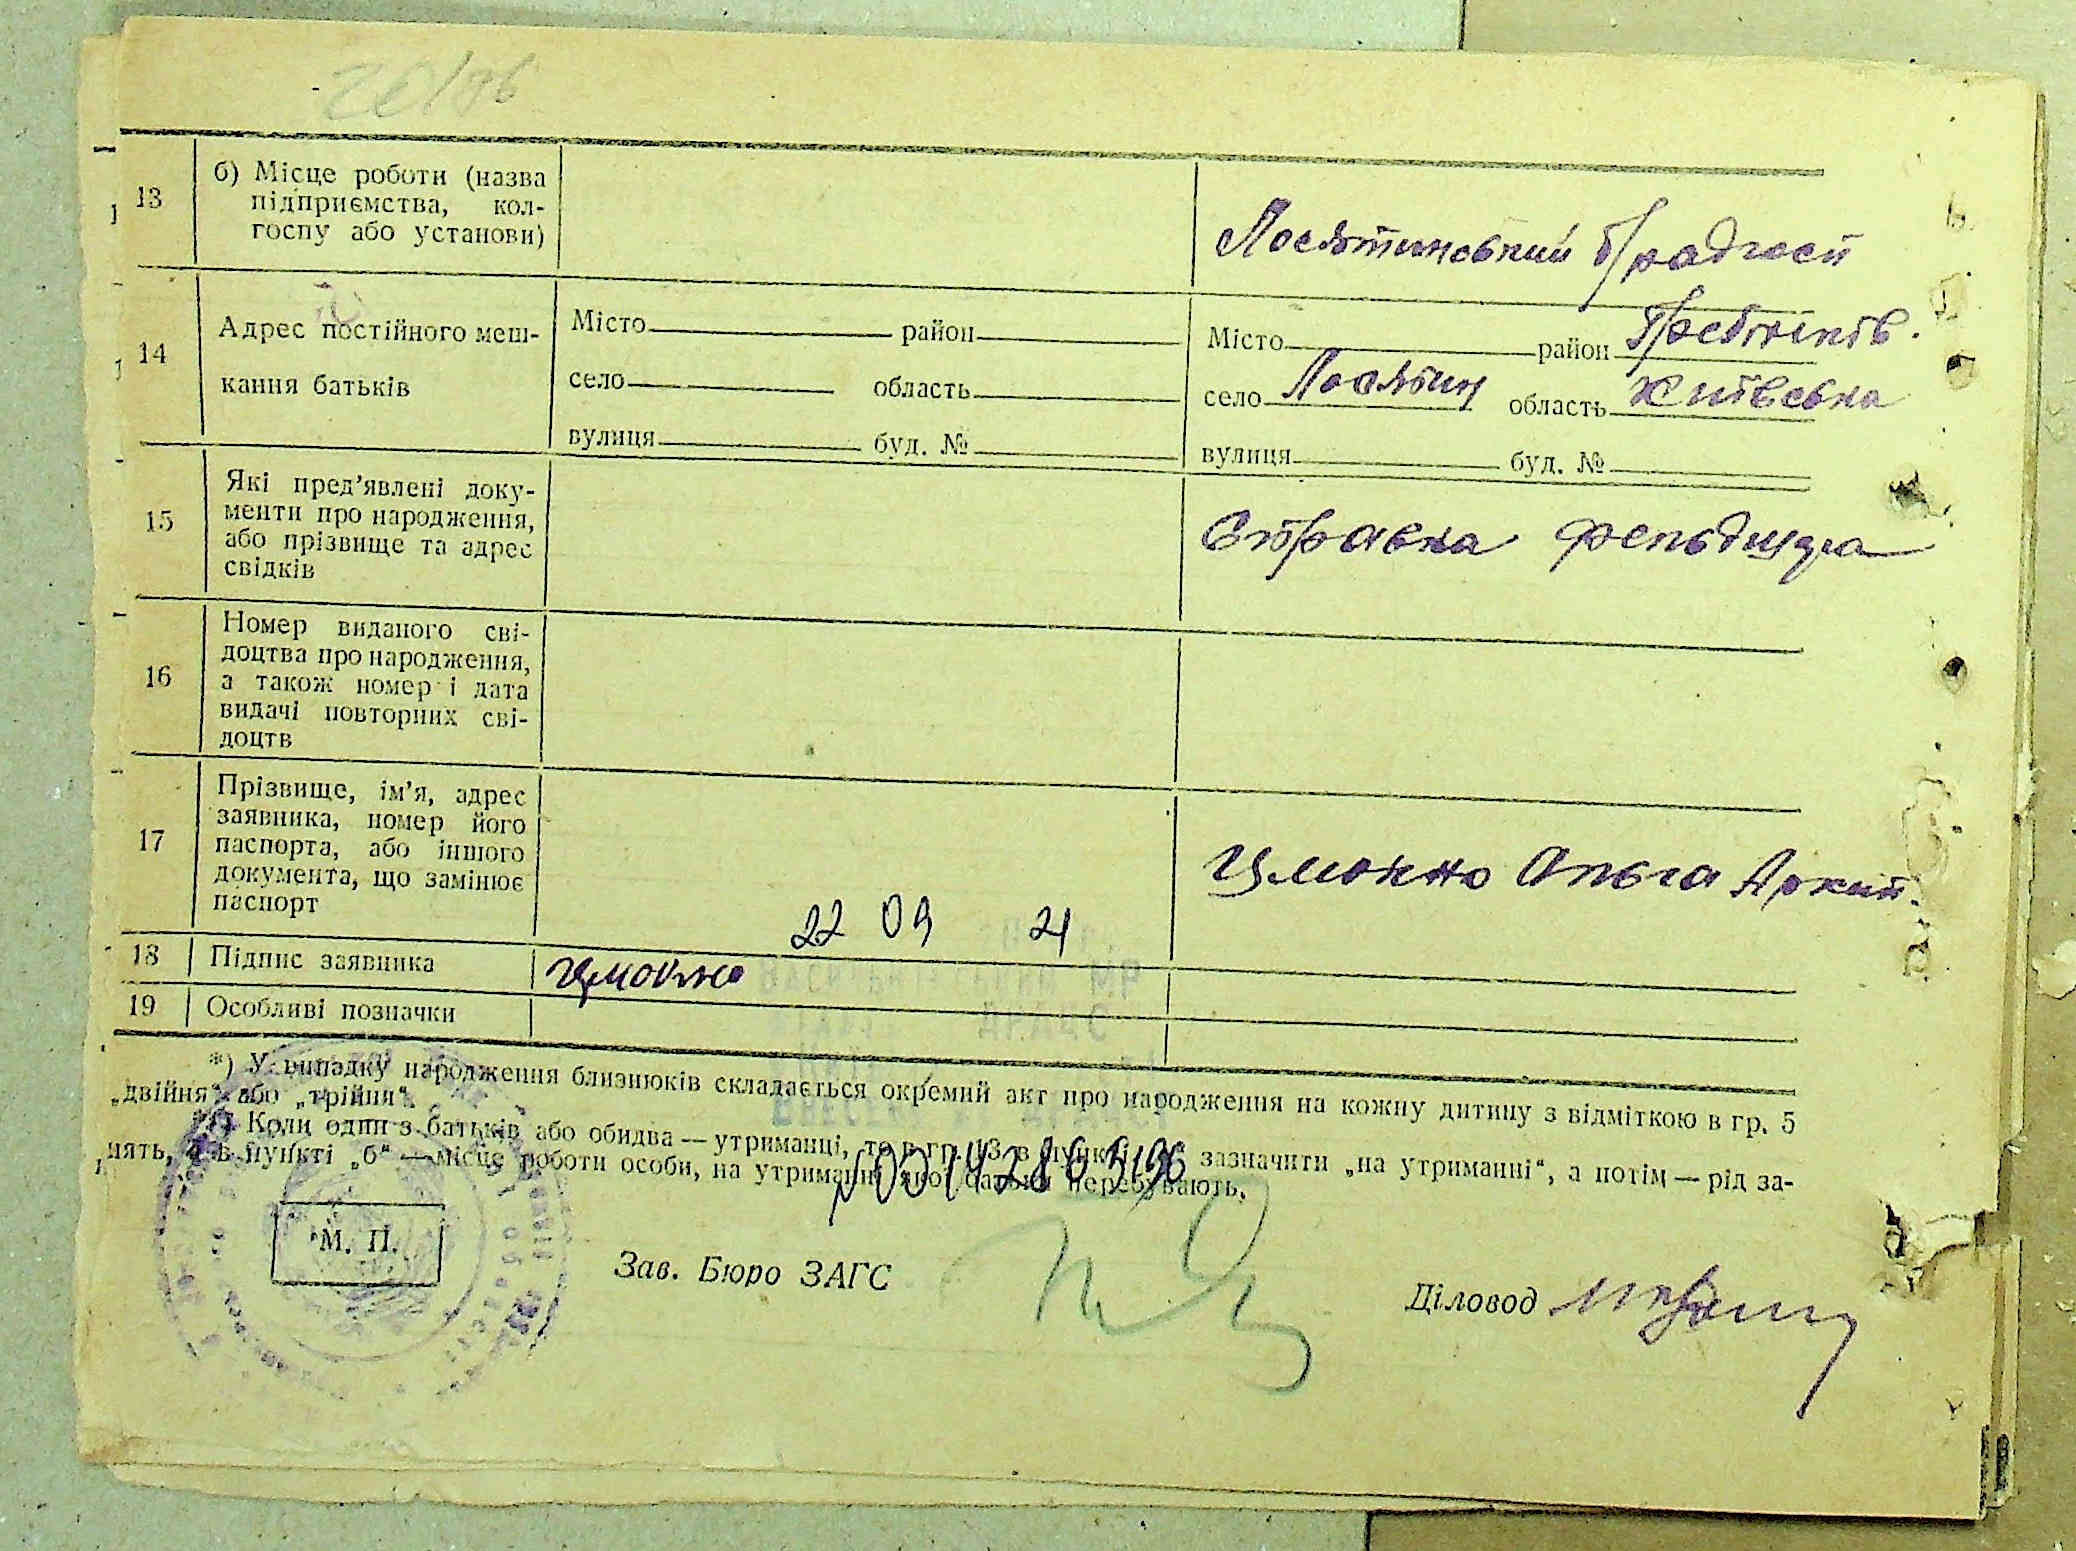 13
б) Місце роботи (назва
підприємства, кол-
госпу або установи)
радгосп
14
Адрес постійного меш-
кання батьків
Місто район
село область
вулиця буд. №
Місто район Гребінків.
село Посятин область Київська
вулиця буд. №
15
Які пред'явлені доку-
менти про народження,
або прізвище та адрес
свідків
Справка фельдшера
16
Номер виданого сві-
доцтва про народження,
а також номер і дата
видачі повторних сві-
доцтв
17
Прізвище, ім'я, адрес
заявника, номер його
паспорта, або іншого
документа, що замінює
паспорт
Ольга
22 09 21
18 Підпис заявника
19 Особливі позначки
*) У випадку народження близнюків складається окремий акт про народження на кожну дитину з відміткою в гр. 5
„двійня“ або „трійня“.
**) Коли один з батьків або обидва — утриманці, то в гр. 13 в пункті зазначити „на утриманні“, а потім — рід за-
нять, а в пункті „б“ — місце роботи особи, на утриманні якої батьки перебувають.
М. П.
Зав. Бюро ЗАГС
Діловод